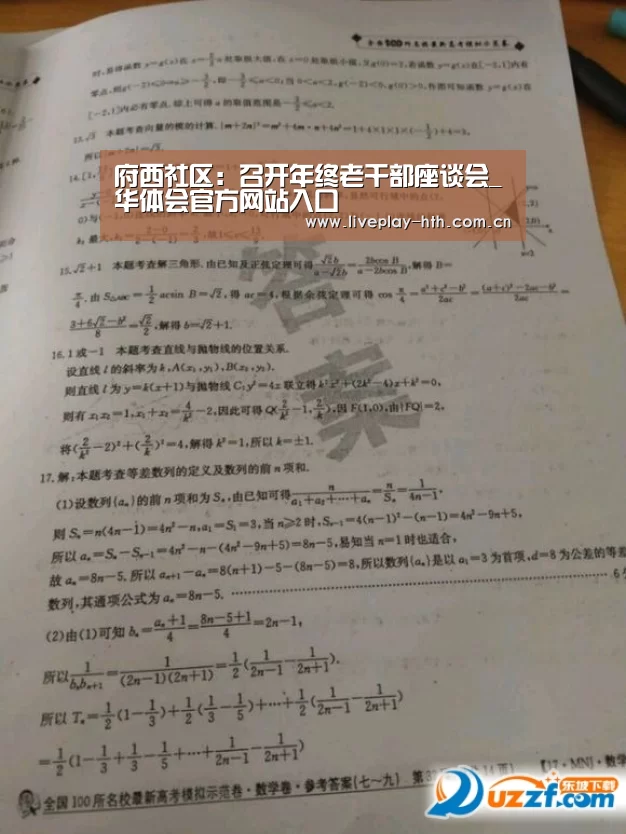 全国100所名校最新高考模拟示范卷
时,易得函数 y=g(x)在 x=-2/a 处取极大值,在 x=0处取极小值,又g(0)=2,若函数 y=g(x)在[-2,1]内有
[-2,1]内必有零点.综上可得 a 的取值范围是
13.√3 本题考查向量的模的计算.|m+2n|²=m²+4m·n+4n²=1+4×1×1×(-1/2)+4=3,
所以|m+2n|=√3.
府西社区：召开年终老干部座谈会_
华体会官方网站入口
www.liveplay-hth.com.cn
15.√2+1 本题考查解三角形.由已知及正弦定理可得 √2b/(a-√2b)=2bcos B/(a-2bcos B),解得 B=
π/4.由 S△ABC=1/2 acsin B=√2,得 ac=4,根据余弦定理可得 cos π/4=(a²+c²-b²)/2ac=((a+c)²-2ac-b²)/2ac=
(3+6√2-b²)/8=√2/2,解得 b=√2+1.
16.1 或-1 本题考查直线与抛物线的位置关系.
设直线 l 的斜率为 k,A(x₁,y₁),B(x₂,y₂).
则直线 l 为 y=k(x+1)与抛物线 C:y²=4x 联立得 k²x²+(2k²-4)x+k²=0,
则有 x₁x₂=1,x₁+x₂=4/k²-2,因此可得 Q(2/k²-1,2/k),因 F(1,0),由|FQ|=2,
将(2/k²-2)²+(2/k)²=4,解得 k²=1,所以 k=±1.
17.解:本题考查等差数列的定义及数列的前 n 项和.
(1)设数列{aₙ}的前 n 项和为 Sₙ,由已知可得 n/(a₁+a₂+…+aₙ)=n/Sₙ=1/(4n-1),
则 Sₙ=n(4n-1)=4n²-n,a₁=S₁=3,当 n≥2 时,Sₙ₋₁=4(n-1)²-(n-1)=4n²-9n+5,
所以 aₙ=Sₙ-Sₙ₋₁=4n²-n-(4n²-9n+5)=8n-5,易知当 n=1 时也适合,
故 aₙ=8n-5.所以 aₙ₊₁-aₙ=8(n+1)-5-(8n-5)=8,所以数列{aₙ}是以 a₁=3 为首项,d=8 为公差的等差
数列,其通项公式为 aₙ=8n-5. …… 6分
(2)由(1)可知 bₙ=(aₙ+1)/4=(8n-5+1)/4=2n-1,
所以 1/(bₙbₙ₊₁)=1/((2n-1)(2n+1))=1/2(1/(2n-1)-1/(2n+1)).
所以 Tₙ=1/2(1-1/3)+1/2(1/3-1/5)+…+1/2(1/(2n-1)-1/(2n+1))
=1/2(1-1/3+1/3-1/5+…+1/(2n-1)-1/(2n+1))
答案
全国100所名校最新高考模拟示范卷·数学卷·参考答案(七~九)
【17·MNJ·数学
东坡下载
uzzf.com